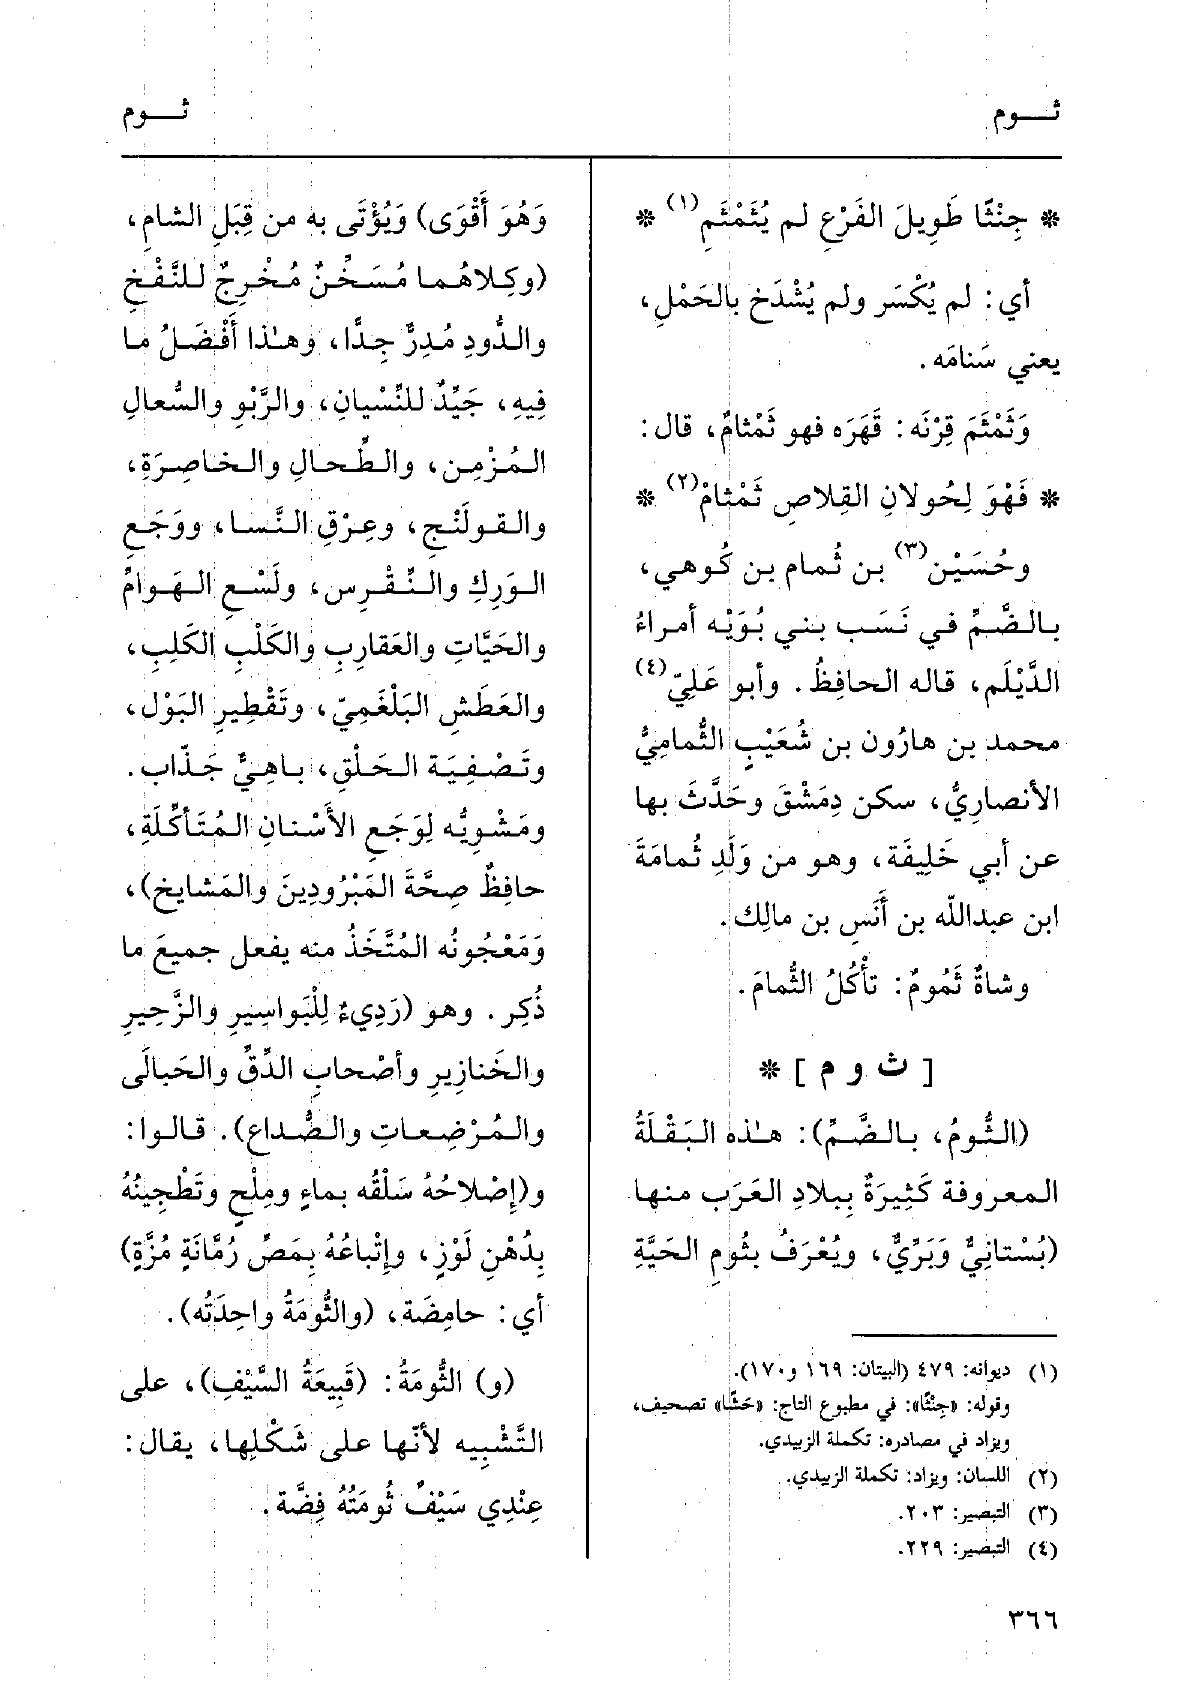 ثـــوم
ثـــوم
* جِنْثًا طَوِيلَ الفَرْعِ لم يُثَمْثَمِ(١) *
أي: لم يُكْسَر ولم يُشْدَخ بالحَمْلِ،
يعني سَنامَه.
وَثَمْثَمَ قِرْنَه: قَهَرَه فهو ثَمْثامٌ، قال:
* فَهْوَ لِحُولانِ القِلاصِ ثَمْثامْ(٢) *
وحُسَيْن(٣) بن ثُمام بن كُوهي،
بالضَّمِّ في نَسَب بني بُوَيْه أمراءُ
الدَّيْلَم، قاله الحافِظُ. وأبو عَليّ(٤)
محمد بن هارُون بن شُعَيْبٍ الثُّمامِيُّ
الأنصارِيُّ، سكن دِمَشْقَ وحَدَّثَ بها
عن أبي خَلِيفَة، وهو من وَلَدِ ثُمامَةَ
ابن عبدالله بن أَنَسِ بن مالِك.
وشاةٌ ثَمُومٌ: تأْكُلُ الثُّمامَ.
[ ث و م ] *
(الثُّومُ، بالضَّمِّ): هـٰذه البَقْلَةُ
المعروفة كَثِيرَةٌ بِبلادِ العَرَب منها
(بُسْتانِيٌّ وَبَرِّيٌّ، ويُعْرَفُ بثُومِ الحَيَّةِ
(١) ديوانه: ٤٧٩ (البيتان: ١٦٩ و١٧٠).
وقوله: «جِنْثًا»: في مطبوع التاج: «خَشًا» تصحيف،
ويزاد في مصادره: تكملة الزبيدي.
(٢) اللسان: ويزاد: تكملة الزبيدي.
(٣) التبصير: ٢٠٣.
(٤) التبصير: ٢٢٩.
وَهُوَ أَقْوَى) وَيُؤْتَى به من قِبَلِ الشام،
(وكِلاهُما مُسَخِّنٌ مُخْرِجٌ للنَّفْخِ
والدُّودِ مُدِرٌّ جِدًّا، وهـٰذا أَفْضَلُ ما
فِيهِ، جَيِّدٌ للنِّسْيانِ، والرَّبْوِ والسُّعالِ
المُزْمِن، والطِّحالِ والخاصِرَةِ،
والقولَنْجِ، وعِرْقِ النَّسا، ووَجَعِ
الوَرِكِ والنِّقْرِسِ، ولَسْعِ الهَوامِّ
والحَيَّاتِ والعَقارِبِ والكَلْبِ الكَلِبِ،
والعَطَشِ البَلْغَمِيّ، وتَقْطِيرِ البَوْل،
وتَصْفِيَة الحَلْقِ، باهِيٌّ جَذّاب.
ومَشْوِيُّه لِوَجَعِ الأَسْنانِ المُتَأكِّلَةِ،
حافِظٌ صِحَّةَ المَبْرُودِينَ والمَشايِخِ)،
وَمَعْجُونُه المُتَّخَذُ منه يفعل جميعَ ما
ذُكِر. وهو (رَدِيءٌ لِلْبَواسِيرِ والزَّحِيرِ
والخَنازِيرِ وأصْحابِ الدِّقِّ والحَبالَى
والمُرْضِعاتِ والصُّداعِ). قالوا:
و(إصْلاحُهُ سَلْقُه بماءٍ ومِلْحٍ وتَطْجِينُهُ
بِدُهْنِ لَوْزٍ، وإتْباعُهُ بِمَصِّ رُمّانَةٍ مُزَّةٍ)
أي: حامِضَة، (والثُّومَةُ واحِدَتُه).
(و) الثُّومَةُ: (قَبِيعَةُ السَّيْفِ)، على
التَّشْبِيه لأنّها على شَكْلِها، يقال:
عِنْدِي سَيْفٌ ثُومَتُهُ فِضَّة.
٣٦٦